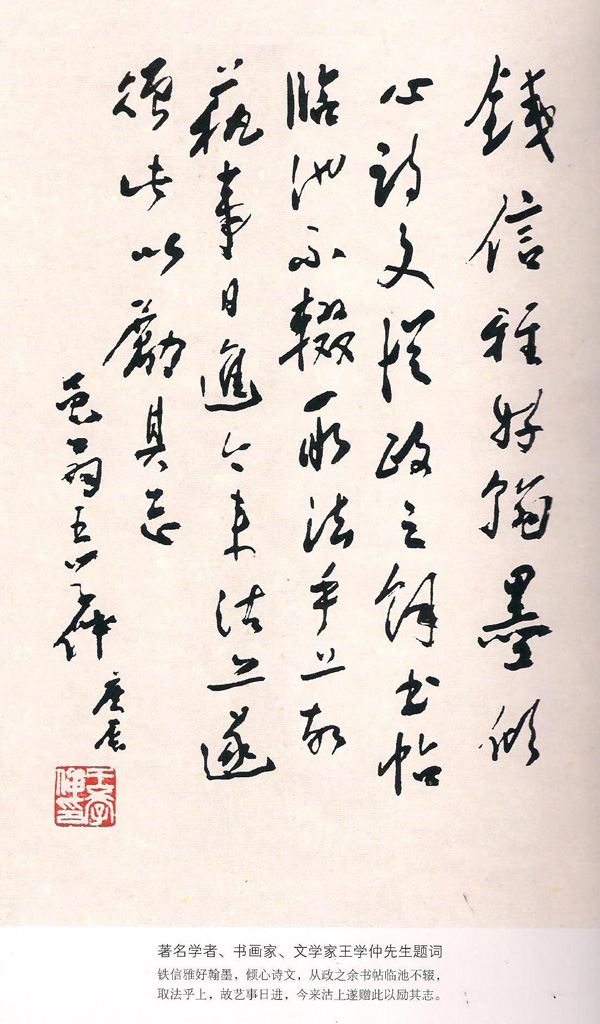 鐵信雅好翰墨傾
心詩文從政之餘書帖
臨池不輟取法乎上故
藝事日進今來沽上遂
此以勵其志
黽翁王學仲
庚辰
王學仲印
著名学者、书画家、文学家王学仲先生题词
铁信雅好翰墨，倾心诗文，从政之余书帖临池不辍，
取法乎上，故艺事日进，今来沽上遂赠此以励其志。